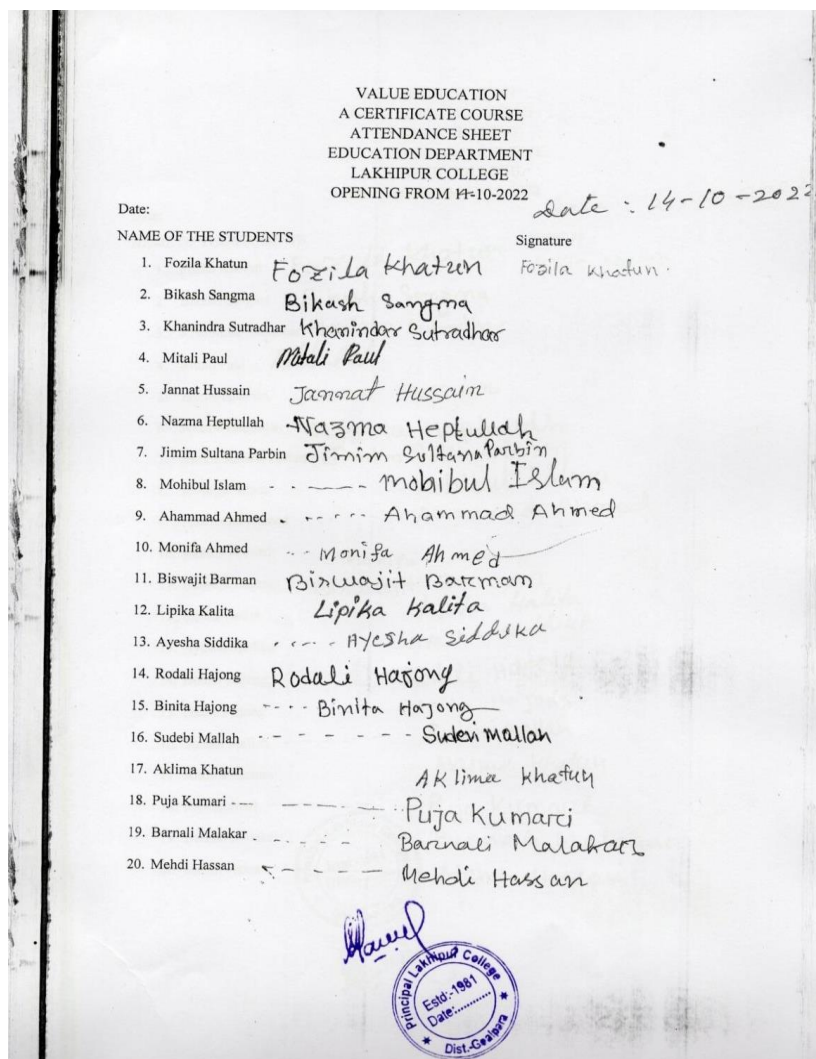 VALUE EDUCATION
A CERTIFICATE COURSE
ATTENDANCE SHEET
EDUCATION DEPARTMENT
LAKHIPUR COLLEGE
OPENING FROM 14-10-2022
Date: Date : 14-10-2022
NAME OF THE STUDENTS Signature
1. Fozila Khatun Fozila Khatun Fozila Khatun.
2. Bikash Sangma Bikash Sangma
3. Khanindra Sutradhar Khanindar Sutradhar
4. Mitali Paul Mitali Paul
5. Jannat Hussain Jannat Hussain
6. Nazma Heptullah Nazma Heptullah
7. Jimim Sultana Parbin Jimim Sultana Parbin
8. Mohibul Islam Mohibul Islam
9. Ahammad Ahmed Ahammad Ahmed
10. Monifa Ahmed Monifa Ahmed
11. Biswajit Barman Biswajit Barman
12. Lipika Kalita Lipika Kalita
13. Ayesha Siddika Ayesha Siddika
14. Rodali Hajong Rodali Hajong
15. Binita Hajong Binita Hajong
16. Sudebi Mallah Sudevi Mallah
17. Aklima Khatun Aklima Khatun
18. Puja Kumari Puja Kumari
19. Barnali Malakar Barnali Malakar
20. Mehdi Hassan Mehdi Hassan
Principal Lakhipur College
Estd:-1981
Date:............
Dist.-Goalpara